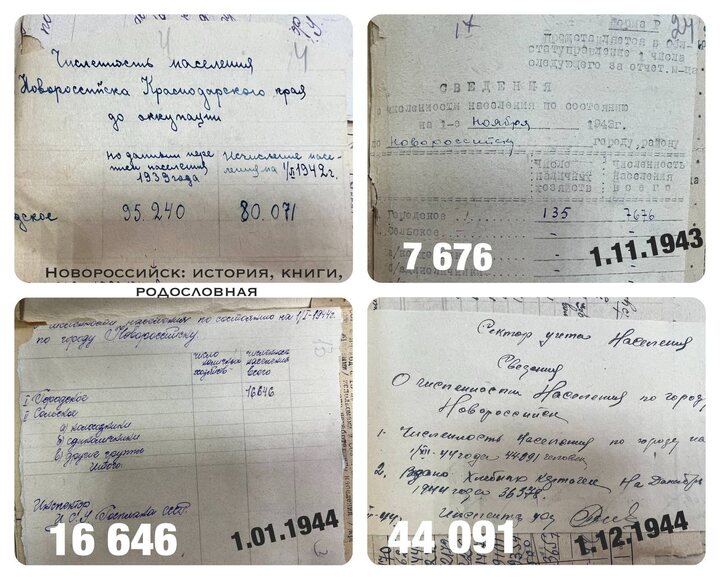 Численость населения
Новороссийска Краснодарского края
до оккупации
по данным пере
писи населения
1939 года
Исчисление насе-
ления на 1/I 1942 г.
дское
95.240
80.071
Новороссийск: история, книги,
родословная
17
24
Форма Р
Представляется в
статуправление 1 числа
следующего за отчет. м-ца
СВЕДЕНИЯ
о численности населения по состоянию
на 1-е ноября 1943г.
по Новороссийску городу, району
Число
наличных
хозяйств
Численность
населения
всего
Городское 135 7676
Сельское - -
7 676
1.11.1943
численности населения по состоянию на 1/I-1944г.
по городу Новороссийску.
число
наличных
хозяйств
численность
населения
всего
I Городское 16646
II Сельское
а) колхозники
б) единоличники
в) другие группы
Итого:
Инспектор
Н.С.У. Госплана СССР
16 646
1.01.1944
Сектор учета Населения
Сведения
О численности Населения по городу
Новороссийск
1. Численность Населения по городу на
1/XII-44 года 44091 человек
2. Вдано Хлебных карточек На Декабрь
1944 года 36578
Инспектор
44 091
1.12.1944